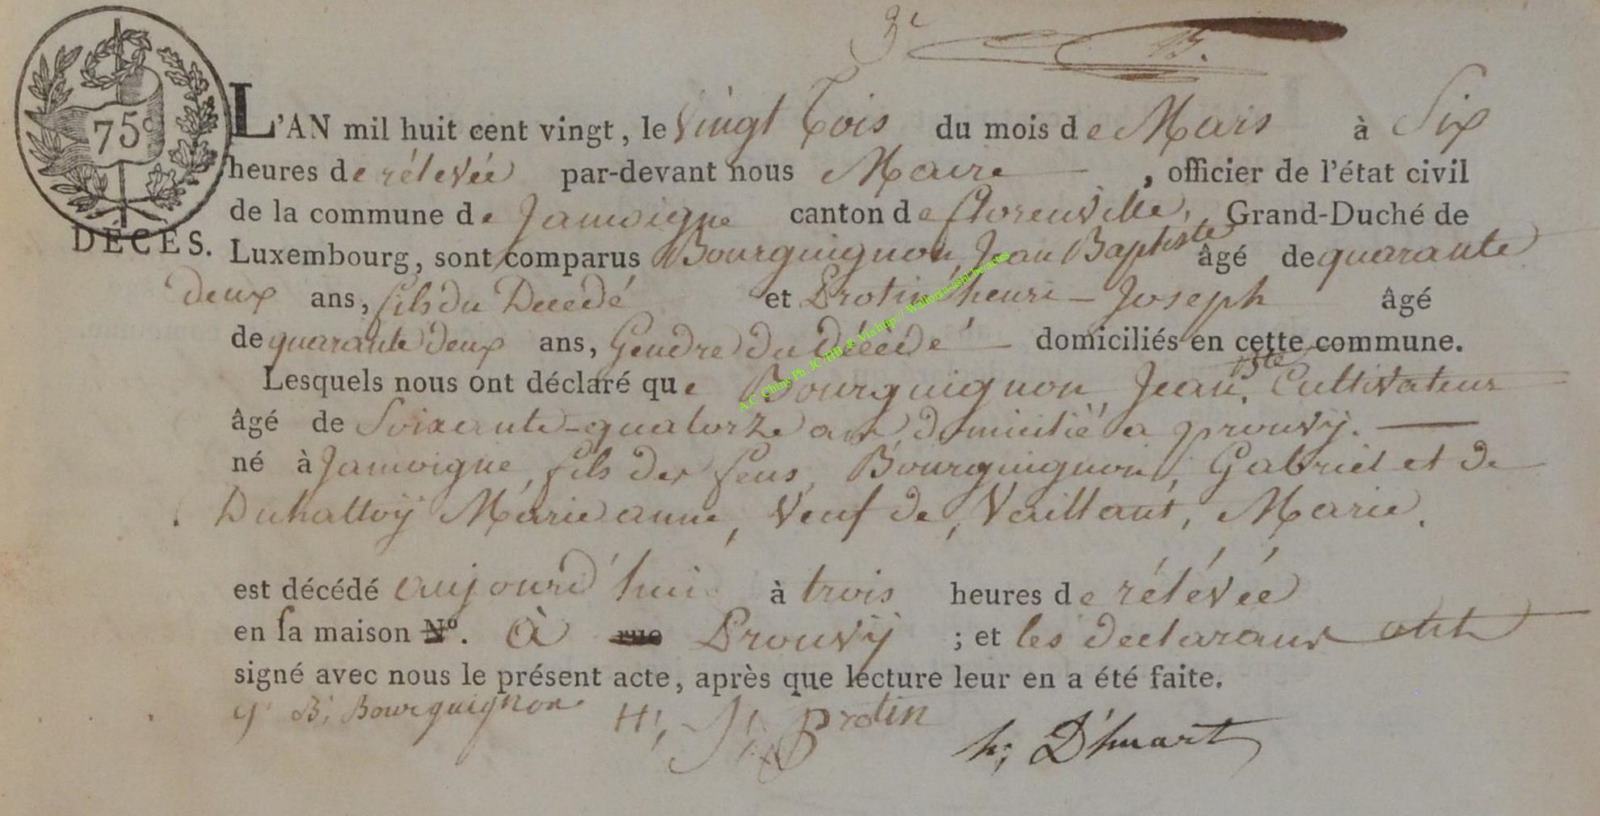 3e
75c
L'AN mil huit cent vingt, le Vingt Tois du mois de Mars à Six
heures de rélevée par-devant nous Maire, officier de l'état civil
de la commune de Jamoigne canton de florenville, Grand-Duché de
DÉCÈS. Luxembourg, sont comparus Bourguignon Jean Baptiste âgé de quarante
deux ans, fils du Decedé et Protin henri - Joseph âgé
de quarante deux ans, Gendre du décédé domiciliés en cette commune.
Lesquels nous ont déclaré que Bourguignon, Jean Bste Cultivateur
âgé de Soixante-quatorze ans domicilié a prouvÿ.
né à Jamoigne, fils des feus, Bourguignon, Gabriel et de
Duhattoÿ Marie anne, Veuf de, Vaillant, Marie.
est décédé aujourd'hui à trois heures de rélévée
en sa maison No. à rue Prouvÿ ; et les declarans ont
signé avec nous le présent acte, après que lecture leur en a été faite.
J B; Bourguignon H; J; Protin
h; D'huart